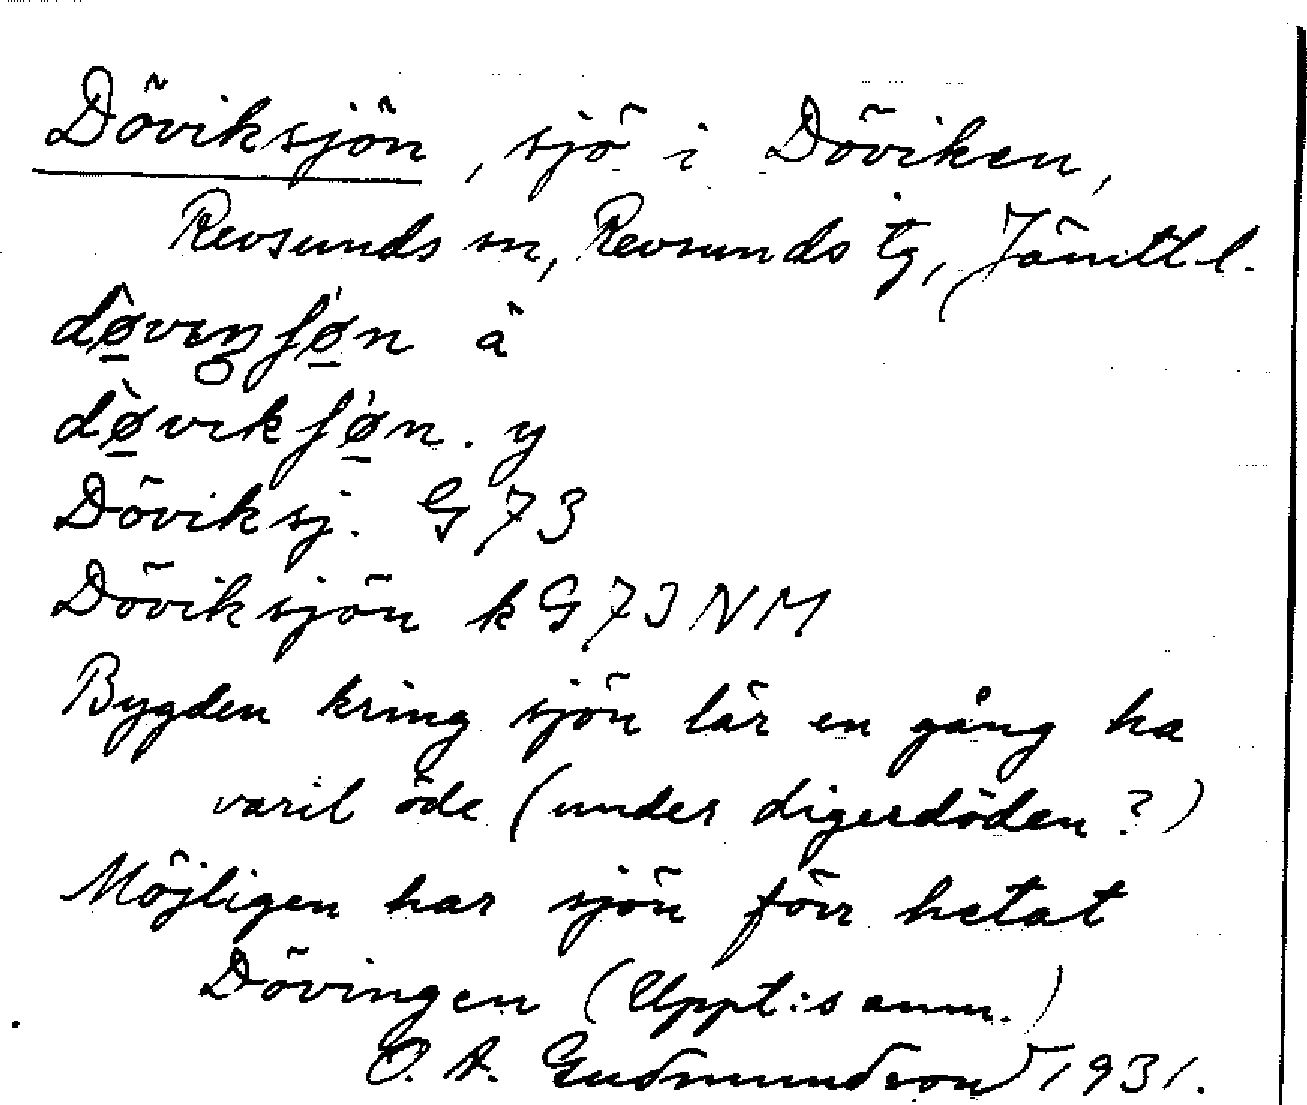 Döviksjön, sjö i Döviken,
Revsunds sn, Revsunds tg, Jämtl l.
Döviksj. G 73
Döviksjön k G 73 NM
Bygden kring sjön lär en gång ha
varit öde (under digerdöden?)
Möjligen har sjön förr hetat
Dövingen (Uppt:s anm.)
O. A. Gudmundson 1931.